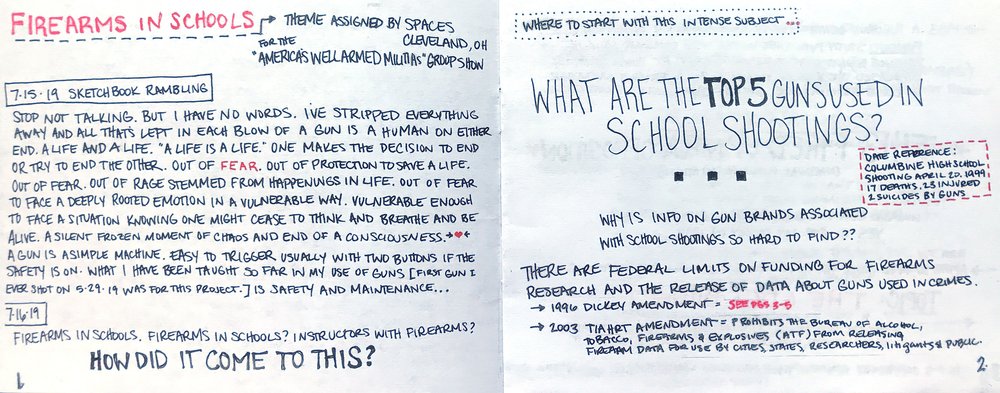 FIREARMS IN SCHOOLS → THEME ASSIGNED BY SPACES
CLEVELAND, OH
FOR THE
"AMERICA'S WELL ARMED MILITIAS" GROUP SHOW
7·15·19 SKETCHBOOK RAMBLING
STOP NOT TALKING. BUT I HAVE NO WORDS. I'VE STRIPPED EVERYTHING
AWAY AND ALL THAT'S LEFT IN EACH BLOW OF A GUN IS A HUMAN ON EITHER
END. A LIFE AND A LIFE. "A LIFE IS A LIFE." ONE MAKES THE DECISION TO END
OR TRY TO END THE OTHER. OUT OF FEAR. OUT OF PROTECTION TO SAVE A LIFE.
OUT OF FEAR. OUT OF RAGE STEMMED FROM HAPPENINGS IN LIFE. OUT OF FEAR
TO FACE A DEEPLY ROOTED EMOTION IN A VULNERABLE WAY. VULNERABLE ENOUGH
TO FACE A SITUATION KNOWING ONE MIGHT CEASE TO THINK AND BREATHE AND BE
ALIVE. A SILENT FROZEN MOMENT OF CHAOS AND END OF A CONSCIOUSNESS.→♥←
A GUN IS A SIMPLE MACHINE. EASY TO TRIGGER USUALLY WITH TWO BUTTONS IF THE
SAFETY IS ON. WHAT I HAVE BEEN TAUGHT SO FAR IN MY USE OF GUNS [FIRST GUN I
EVER SHOT ON 5·29·19 WAS FOR THIS PROJECT.] IS SAFETY AND MAINTENANCE...
7·16·19
FIREARMS IN SCHOOLS. FIREARMS IN SCHOOLS? INSTRUCTORS WITH FIREARMS?
HOW DID IT COME TO THIS?
1
WHERE TO START WITH THIS INTENSE SUBJECT...
WHAT ARE THE TOP 5 GUNS USED IN
SCHOOL SHOOTINGS?
DATE REFERENCE:
COLUMBINE HIGH SCHOOL
SHOOTING APRIL 20, 1999
17 DEATHS. 23 INJURED
2 SUICIDES BY GUNS
WHY IS INFO ON GUN BRANDS ASSOCIATED
WITH SCHOOL SHOOTINGS SO HARD TO FIND??
THERE ARE FEDERAL LIMITS ON FUNDING FOR FIREARMS
RESEARCH AND THE RELEASE OF DATA ABOUT GUNS USED IN CRIMES.
→ 1996 DICKEY AMENDMENT = SEE PGS 3-5
→ 2003 TIAHRT AMENDMENT = PROHIBITS THE BUREAU OF ALCOHOL,
TOBACCO, FIREARMS & EXPLOSIVES (ATF) FROM RELEASING
FIREARM DATA FOR USE BY CITIES, STATES, RESEARCHERS, litigants & PUBLIC.
2.